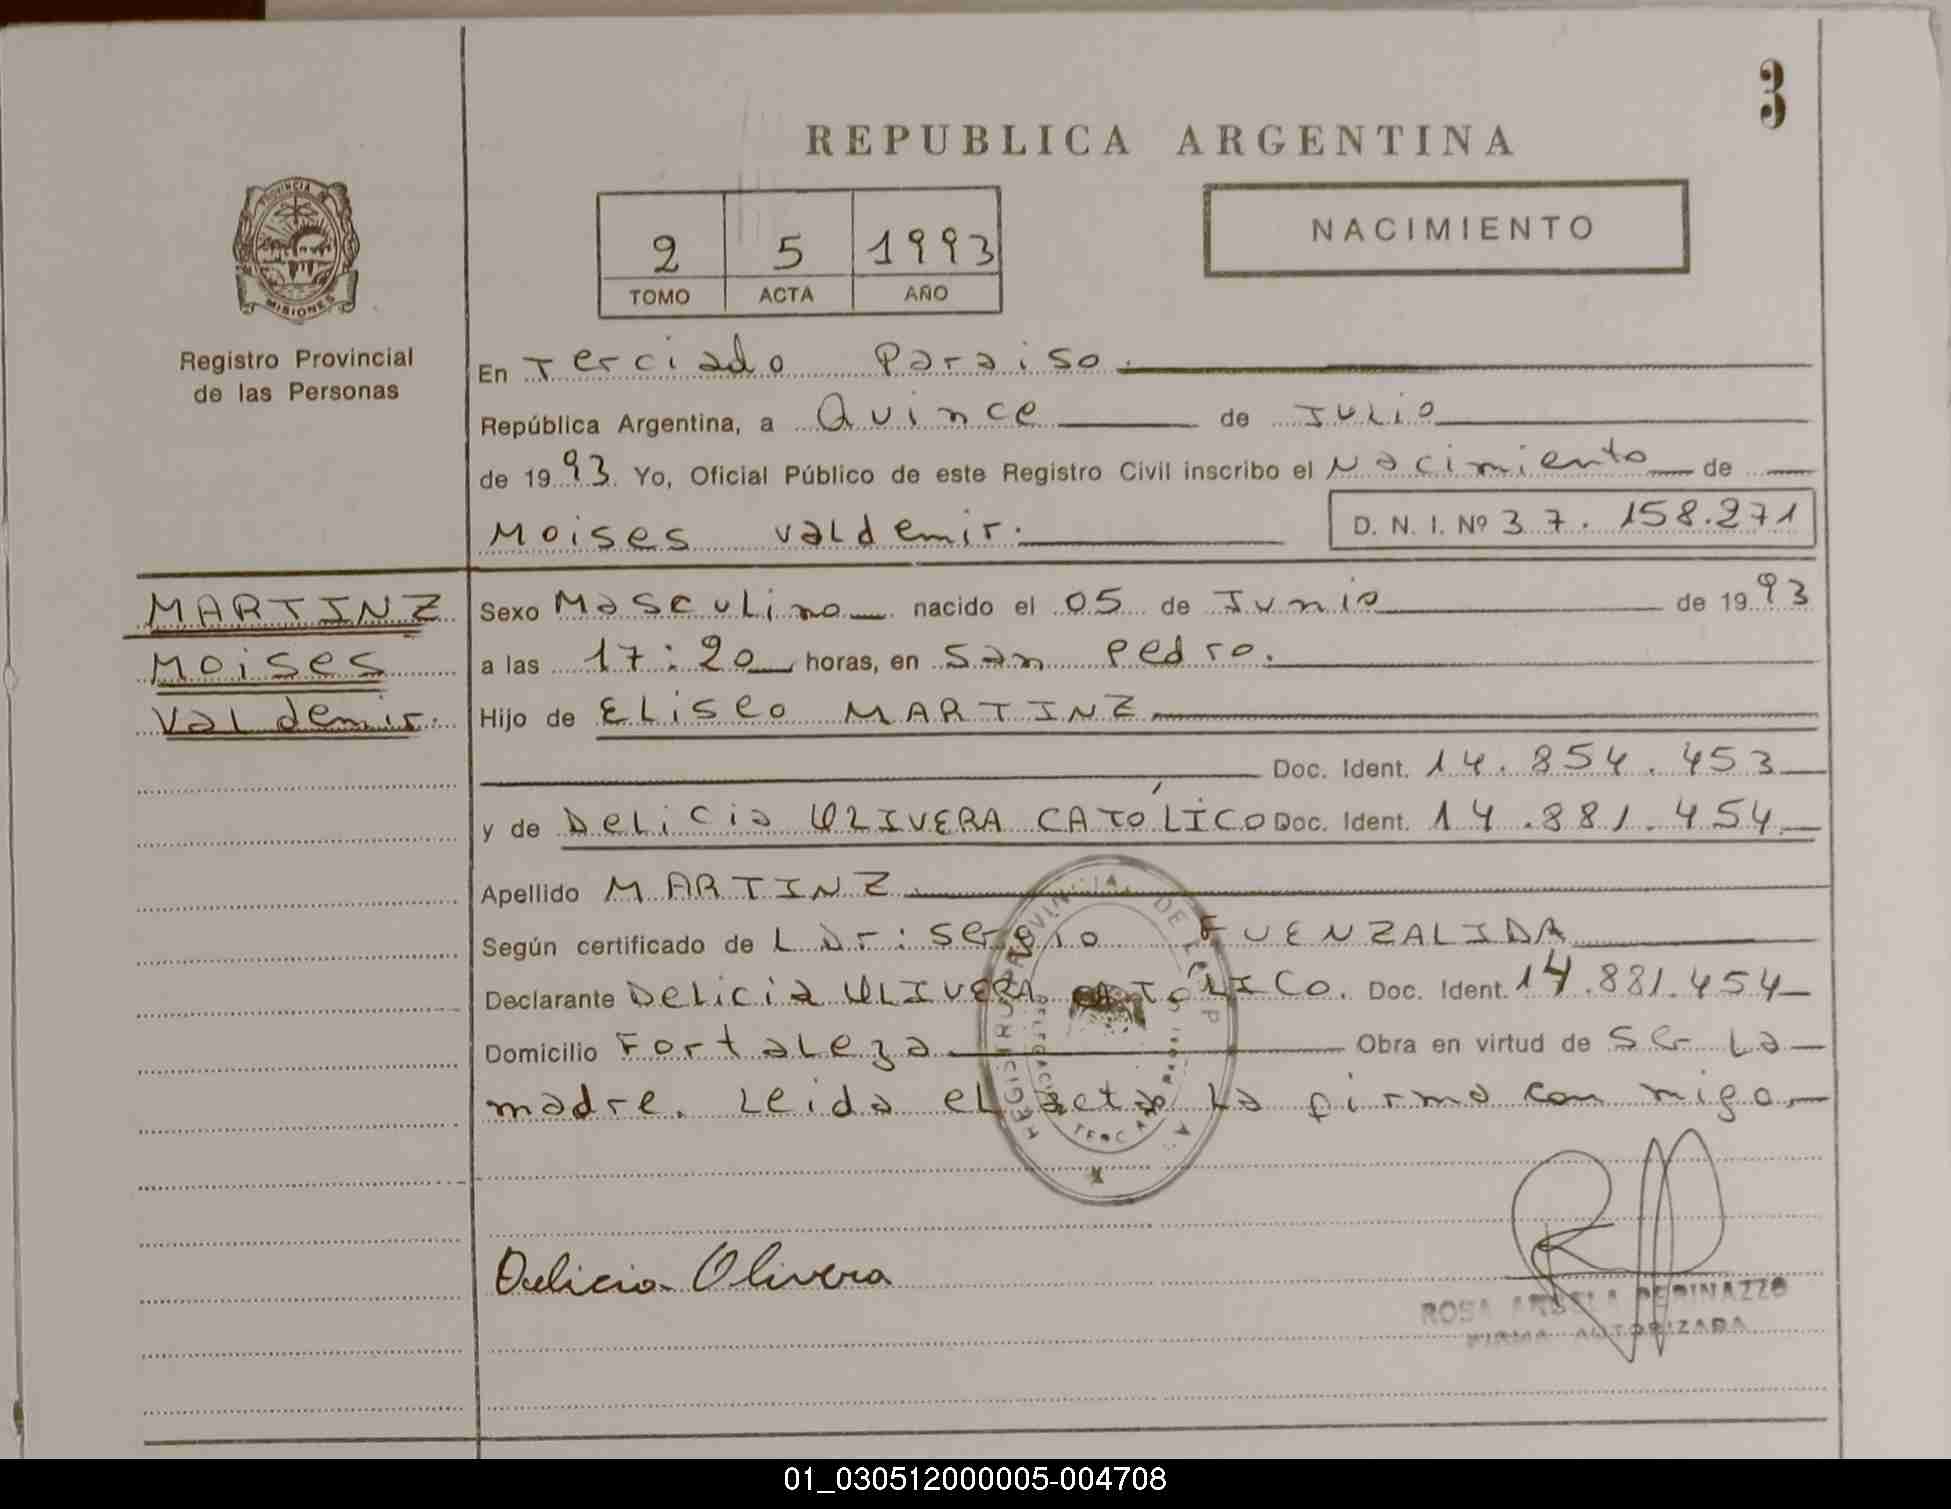 3
REPUBLICA ARGENTINA
PROVINCIA
MISIONES
Registro Provincial
de las Personas
2 5 1993
TOMO ACTA AÑO
NACIMIENTO
En Terciado Paraiso.
República Argentina, a Quince de Julio
de 1993 Yo, Oficial Público de este Registro Civil inscribo el Nacimiento de
Moises Valdemir. D. N. I. Nº 37.158.271
MARTINZ
Moises
Valdemir.
Sexo Masculino nacido el 05 de Junio de 1993
a las 17:20 horas, en San Pedro.
Hijo de Eliseo MARTINZ
Doc. Ident. 14.854.453
y de Delicia OLIVERA CATÓLICO Doc. Ident. 14.881.454
Apellido MARTINZ
Según certificado de Lari Sergio FUENZALIDA
Declarante Delicia OLIVERA CATÓLICO. Doc. Ident. 14.881.454
Domicilio Fortaleza Obra en virtud de Ser La
madre. Leida el acta La firma con migo.
Delicia Olivera
ROSA PEDINAZZO
FIRMA AUTORIZADA
01_030512000005-004708